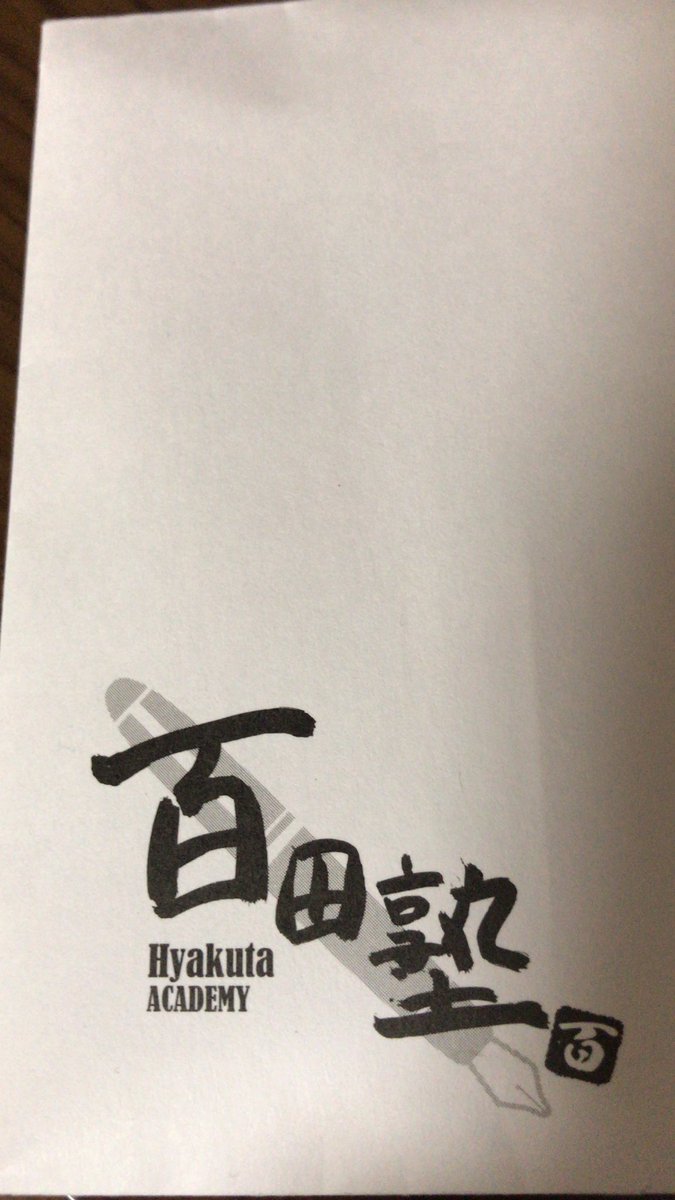 百田塾
Hyakuta
ACADEMY
百